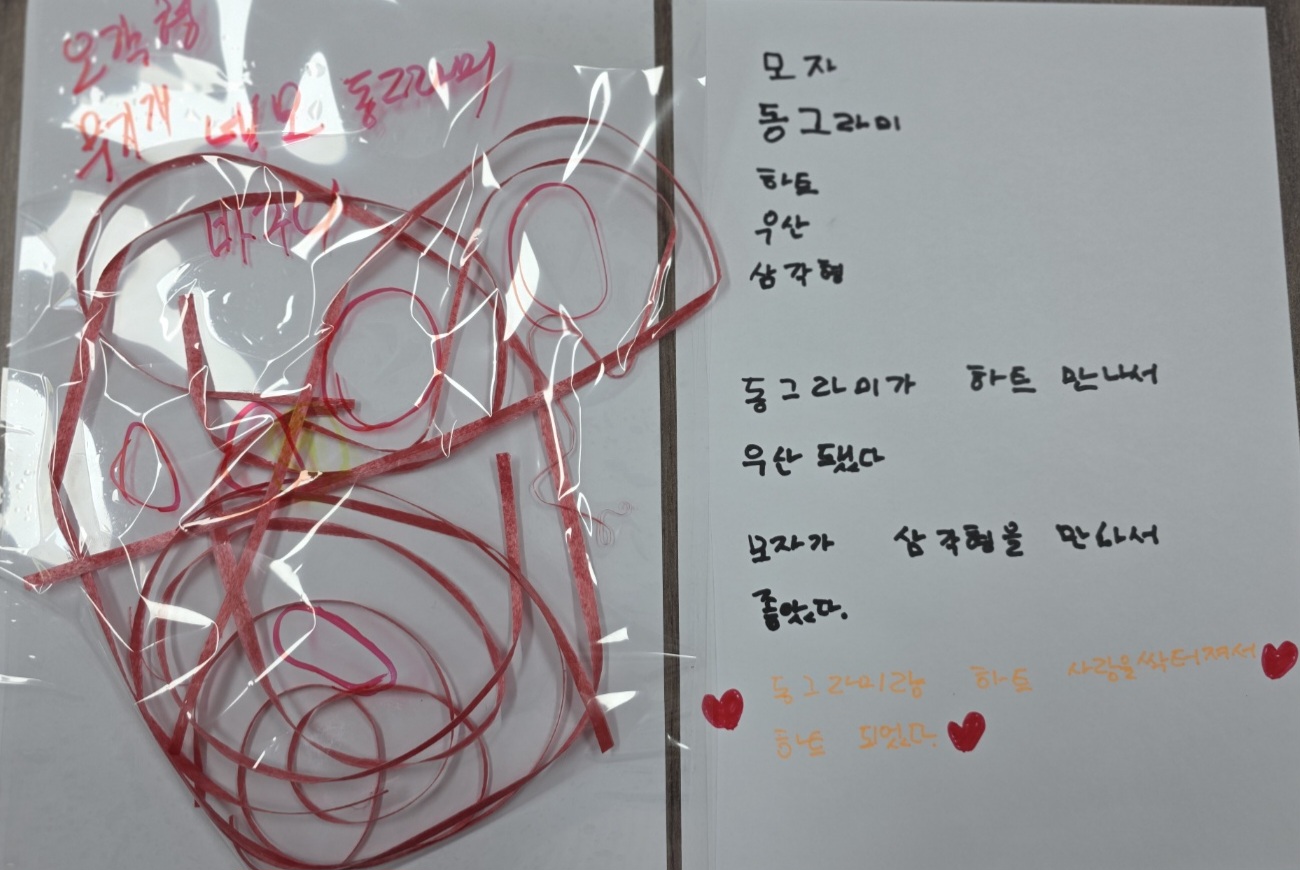 오각형
무지개 네모 동그라미
바구니
모자
동그라미
하트
우산
삼각형
동그라미가 하트 만나서
우산 됐다
모자가 삼각형을 만나서
좋았다.
동그라미랑 하트 사랑을 싹터져서
하트 되었다.